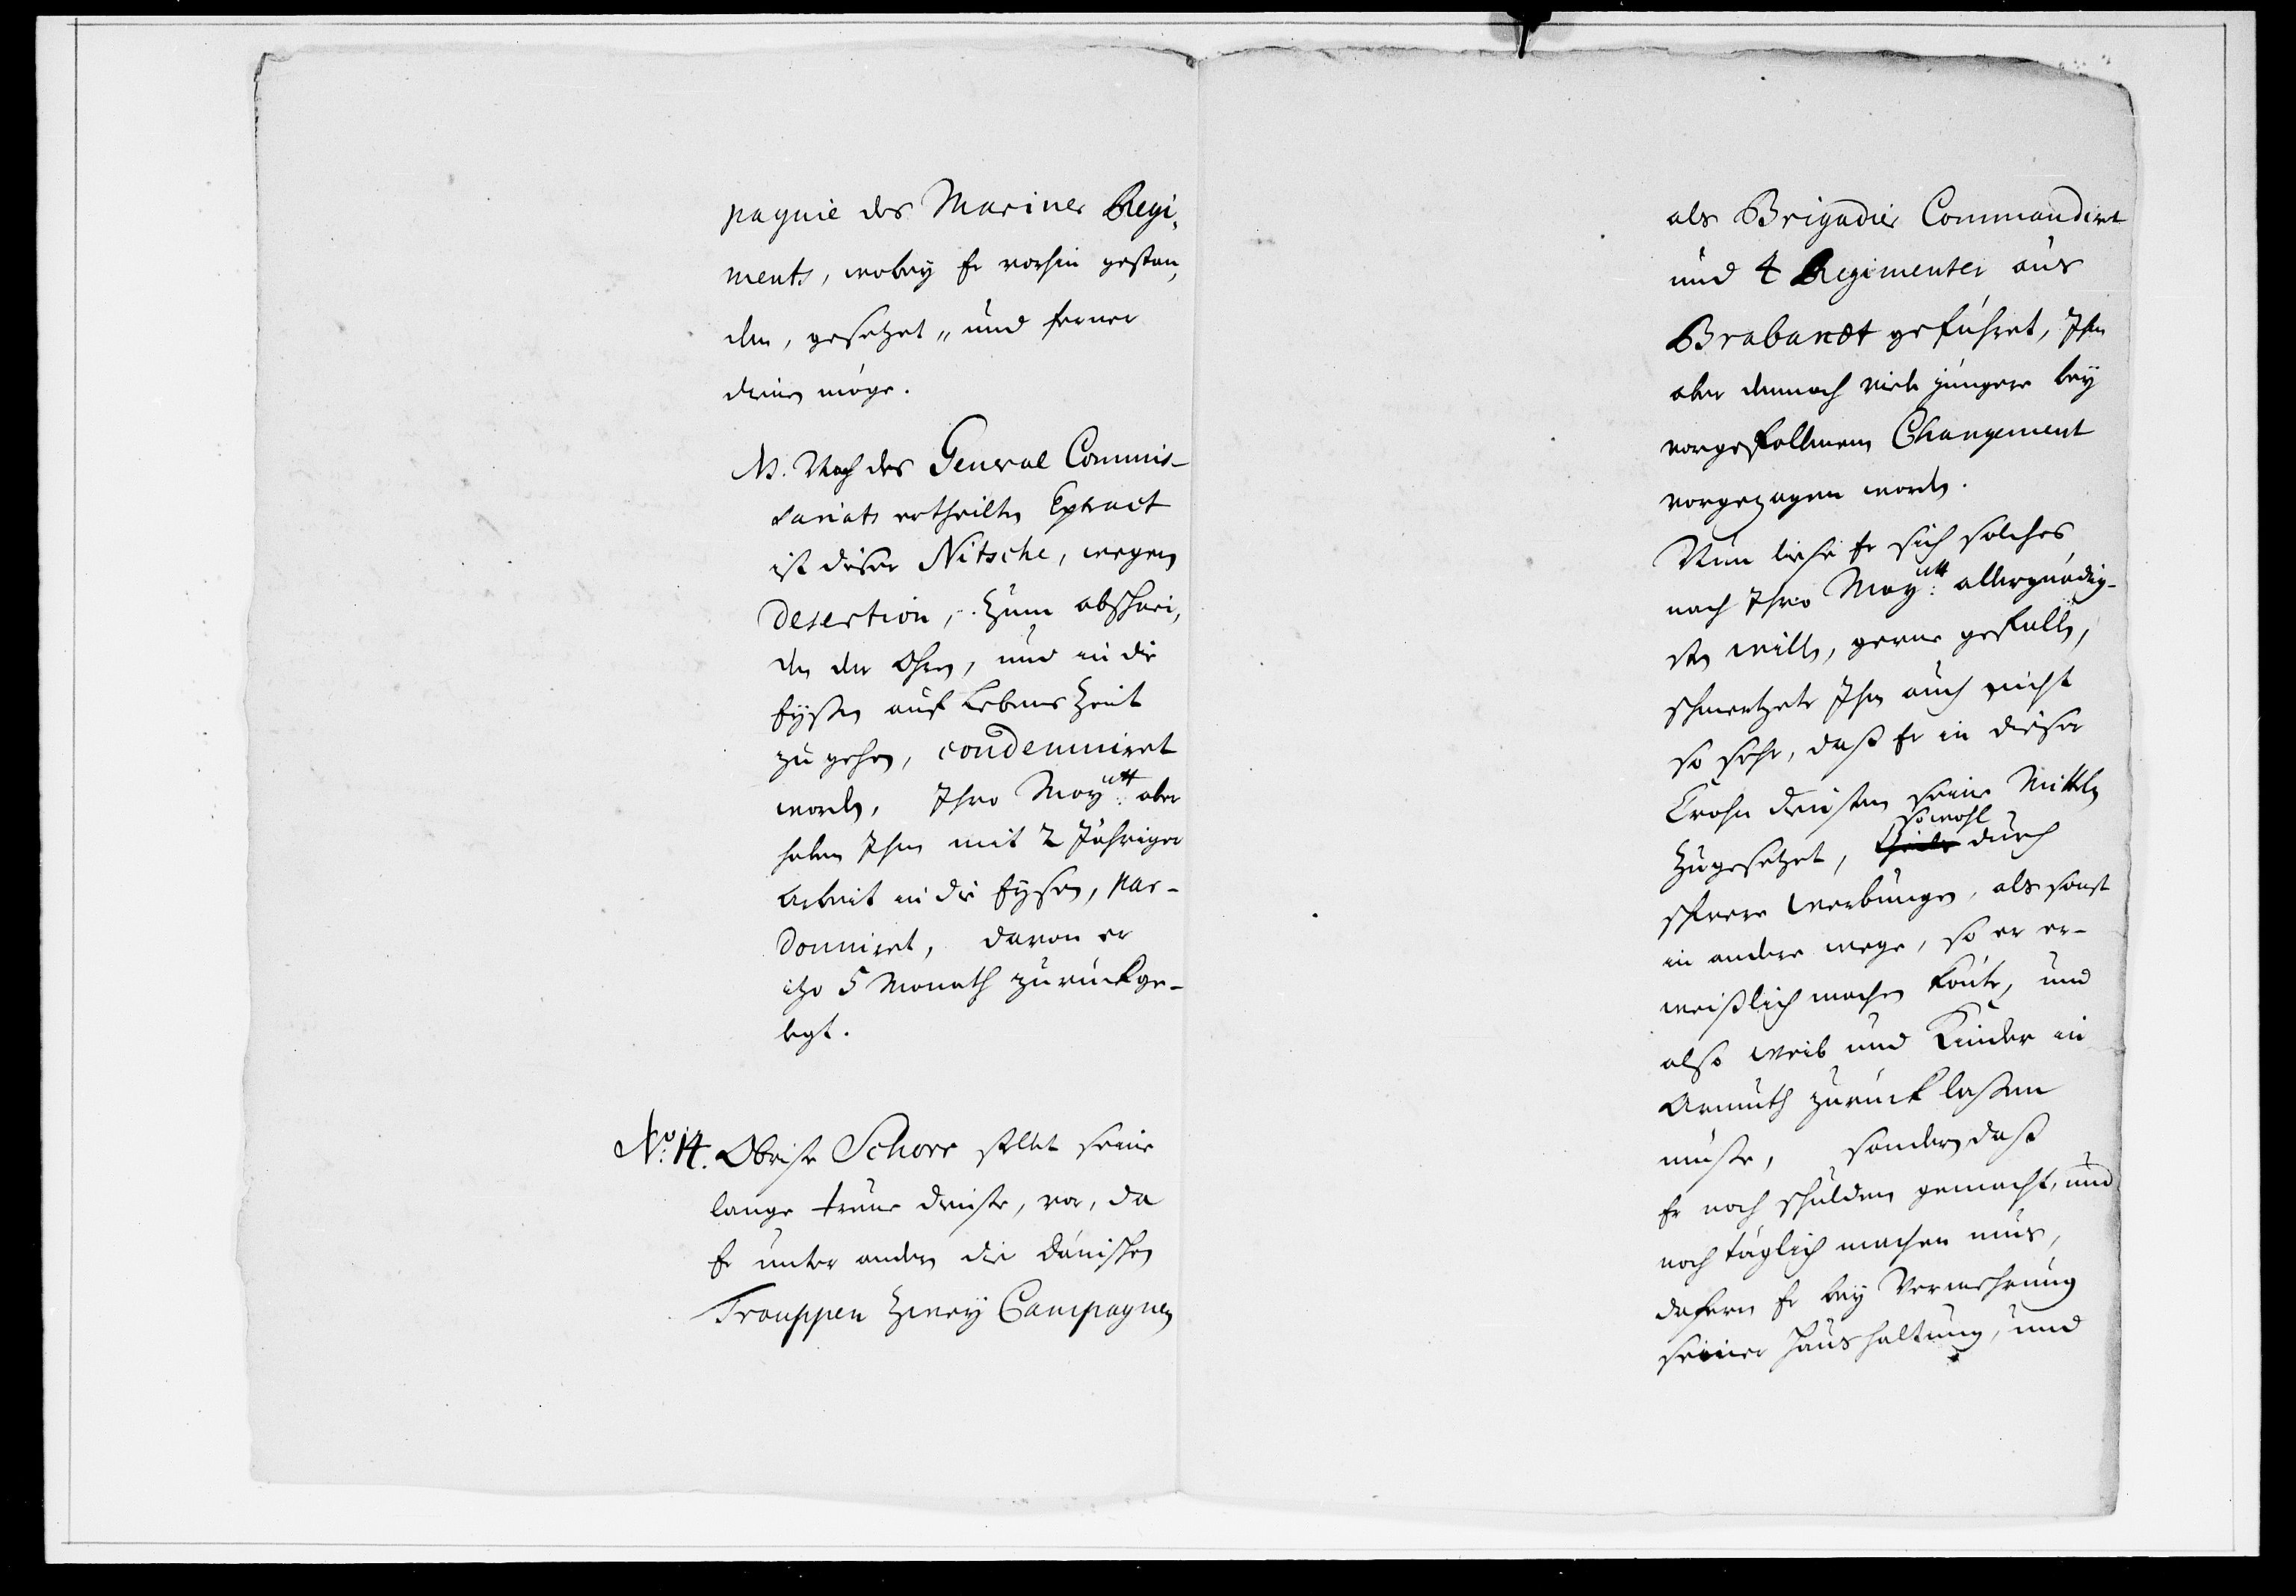 pagnie des Mariner Regi,
ments, wobey Er vorhin gestan,
den, gesetzet, und ferner
dienen möge.
NB. Nach des General Commis-
sariats ertheilten Extract
ist dieser Nitsche, wegen
Desertion, zum abschnei,
den der Ohren, und in die
Eysen auf Lebens Zeit
zu gehen, condemniret
worden, Ihro Mayᵗᵗ: aber
haben Ihm mit 2 Jähriger
Arbeit in die Eysen, par-
donniret, davon er
itzo 5 Monath zurückge-
legt.
No: 14. Obrister Schorr stellet seine
lange treue Dienste, vor, da
Er unter andern die Dänischen
Trouppen Zwey Campagnen
als Brigadier Commandiret
und 4 Regimenter aus
Brabandt geführet, Ihm
aber dennoch viele jüngere bey
vorgefallenem Changement
vorgezogen worden.
Nun ließe Er sich solches
nach Ihro Mayᵗᵗ: allergnädig-
sten willen, gerne gefallen,
schmertzete Ihm auch nicht
so sehr, daß Er in dieser
Crohn Diensten seine Mitteln
sowohl
zugesetzet, theils durch
schwere Werbungen, als sonst
in andere wege, so er er-
weißlich machen könte, und
also Weib und Kinder in
Armuth zurück laßen
müste, sondern daß
Er noch schulden gemacht, und
noch täglich machen mus,
dafern Er bey Vermehrung
seiner Haushaltung, und